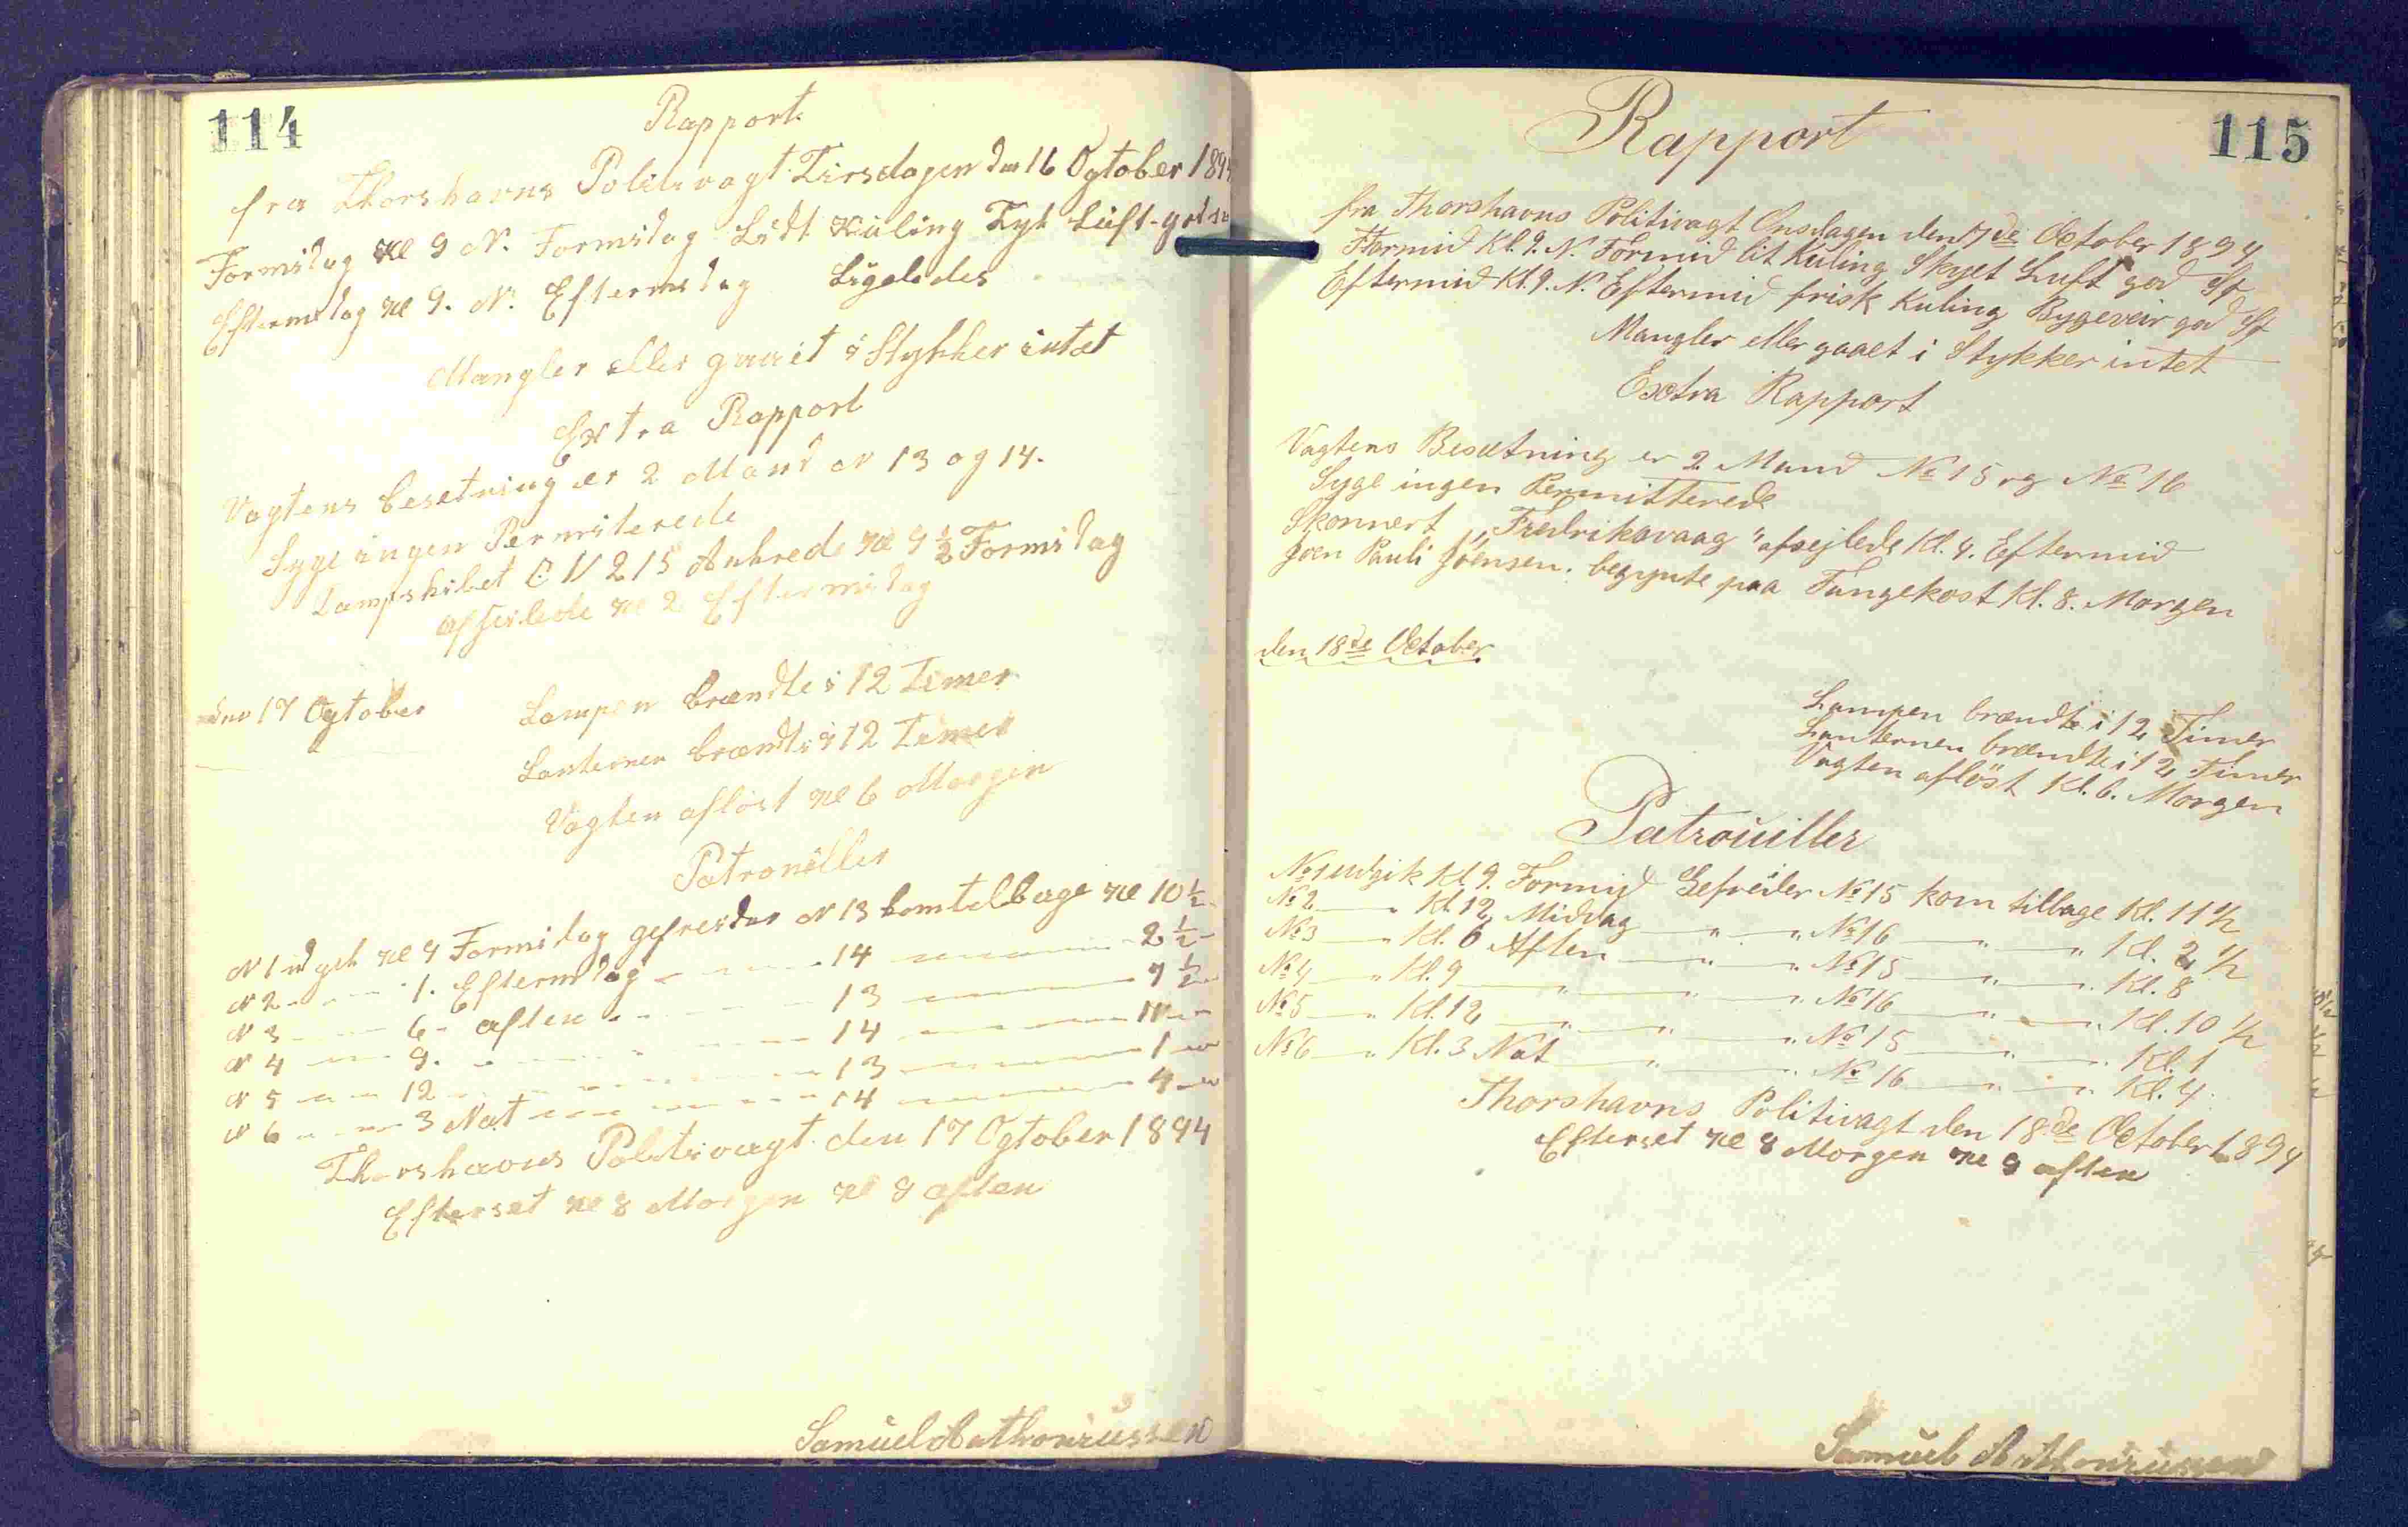 114
Rapport
fra Thorshavns Politivagt Tirsdagen den 16 Ogtober 1894
Formidag Kl 9 N. Formidag Lidt Kuling Tyk Luft - god
Eftermidag Kl 9. N. Eftermidag Ligeledes
Mangler eller gaait i Stykker intet
Extra Rapport
Vagtens besetning er 2 Mand N 13 og 14.
Syge ingen Permiterede
Dampskibet 215 Ankrede Kl 9 ½ Formidag
afseilede Kl 2 Eftermidag
den 17 Ogtober
Lampen brændte i 12 Timer
Lanternen brændte i 12 Timer
Vagten afløst Kl 6 Morgen
Patroniller
N 1 udgik Kl 9 Formidag gefreider N 13 komtelbage Kl 10 ½
N 2 - - - 1. Eftermidag - - - 14 - - - 2 ½ -
N 3 - - 6 - aften - - - 13 - - - 7 ½ -
N 4 - - 9. - - - 14 - - - 11 - -
N 5 - - 12 - - - 13 - - - 1 - -
N 6 - - 3 Nat - - - 14 - - - 4 - -
Thorshavns Politivagt den 17 Ogtober 1894
Efterset Kl 8 Morgen Kl 9 aften
Samuel Mathoniussen
115
Rapport
fra Thorshavns Politivagt Onsdagen den 17de October 1894
Formid Kl. 9. N. Formid lit Kuling Skyet Luft god St
Eftermid Kl. 9. N. Eftermid frisk Kuling Bygeveir god St
Mangler eller gaaet i Stykker intet
Exstra Rapport
Vagtens Besætning er 2 Mand No 15 og No 16
Syge ingen Permitterede
Skonnert „Fredriksvaag" afsejlede Kl. 4. Eftermid
Joen Pauli Joensen. begynte paa Fangekost Kl. 8. Morgen
den 18de October
Lampen brændte i 12 Timer
Lanternen brændte i 12 Timer
Vagten afløst Kl. 6. Morgen
Patrouiller
No 1 udgik Kl 9. Formid Gefreider No 15 kom tilbage Kl. 11 ½
No 2 — " Kl. 12 Midag — " — " No 16 — " — " Kl. 2 ½
No 3 — " Kl. 6 Aften — " — " No 15 — " — " Kl. 8
No 4 — " Kl. 9 — " — " — " No 16 — " — " Kl. 10 ½
No 5 — " Kl. 12 — " — " — " No 15 — " — " Kl. 1
No 6 — " Kl. 3 Nat — " — " No 16 — " — " Kl. 4.
Thorshavns Politivagt den 18de October 1894
Efterset Kl 8 Morgen Kl 9 aften
Samuel Mathoniussen